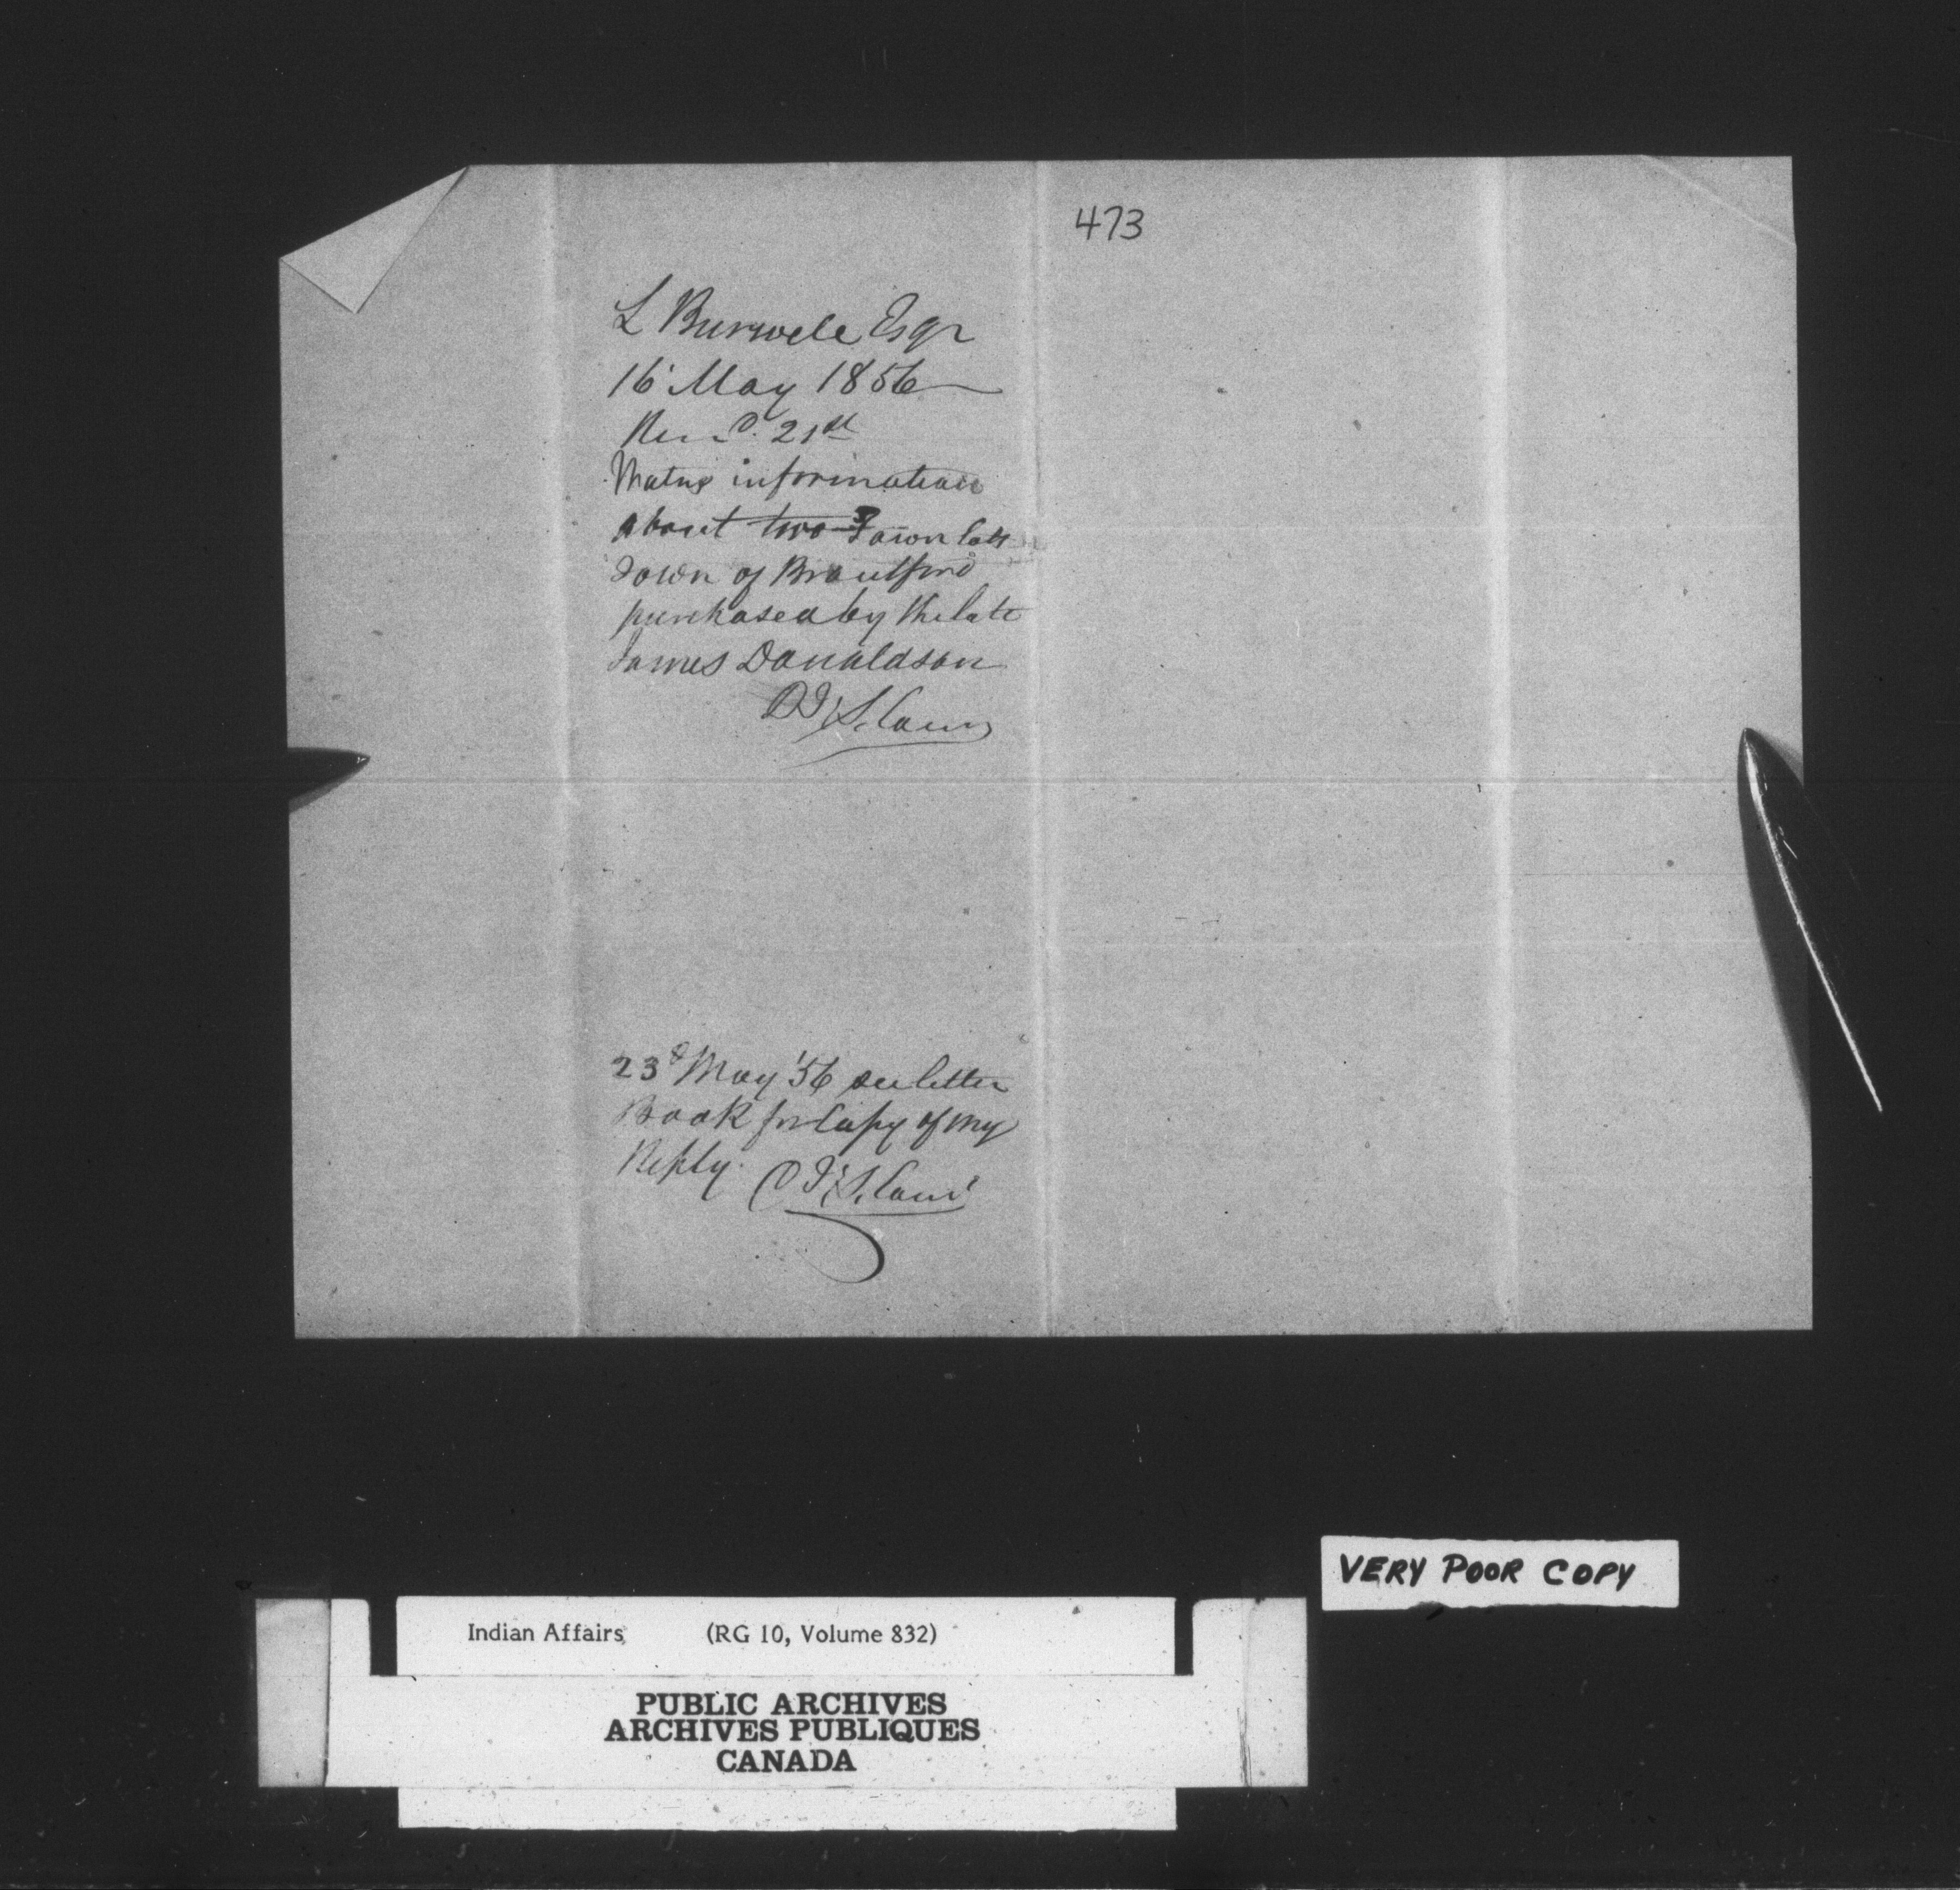 473
L Burwell Esqr
16 May 1856
Recd. 21st
Wants information
about two 3 Town lots
Town of Brantford
purchased by the late
James Donaldson
23d May '56 see letter
Book for Copy of my
Reply.
VERY POOR COPY
Indian Affairs (RG 10, Volume 832)
PUBLIC ARCHIVES
ARCHIVES PUBLIQUES
CANADA